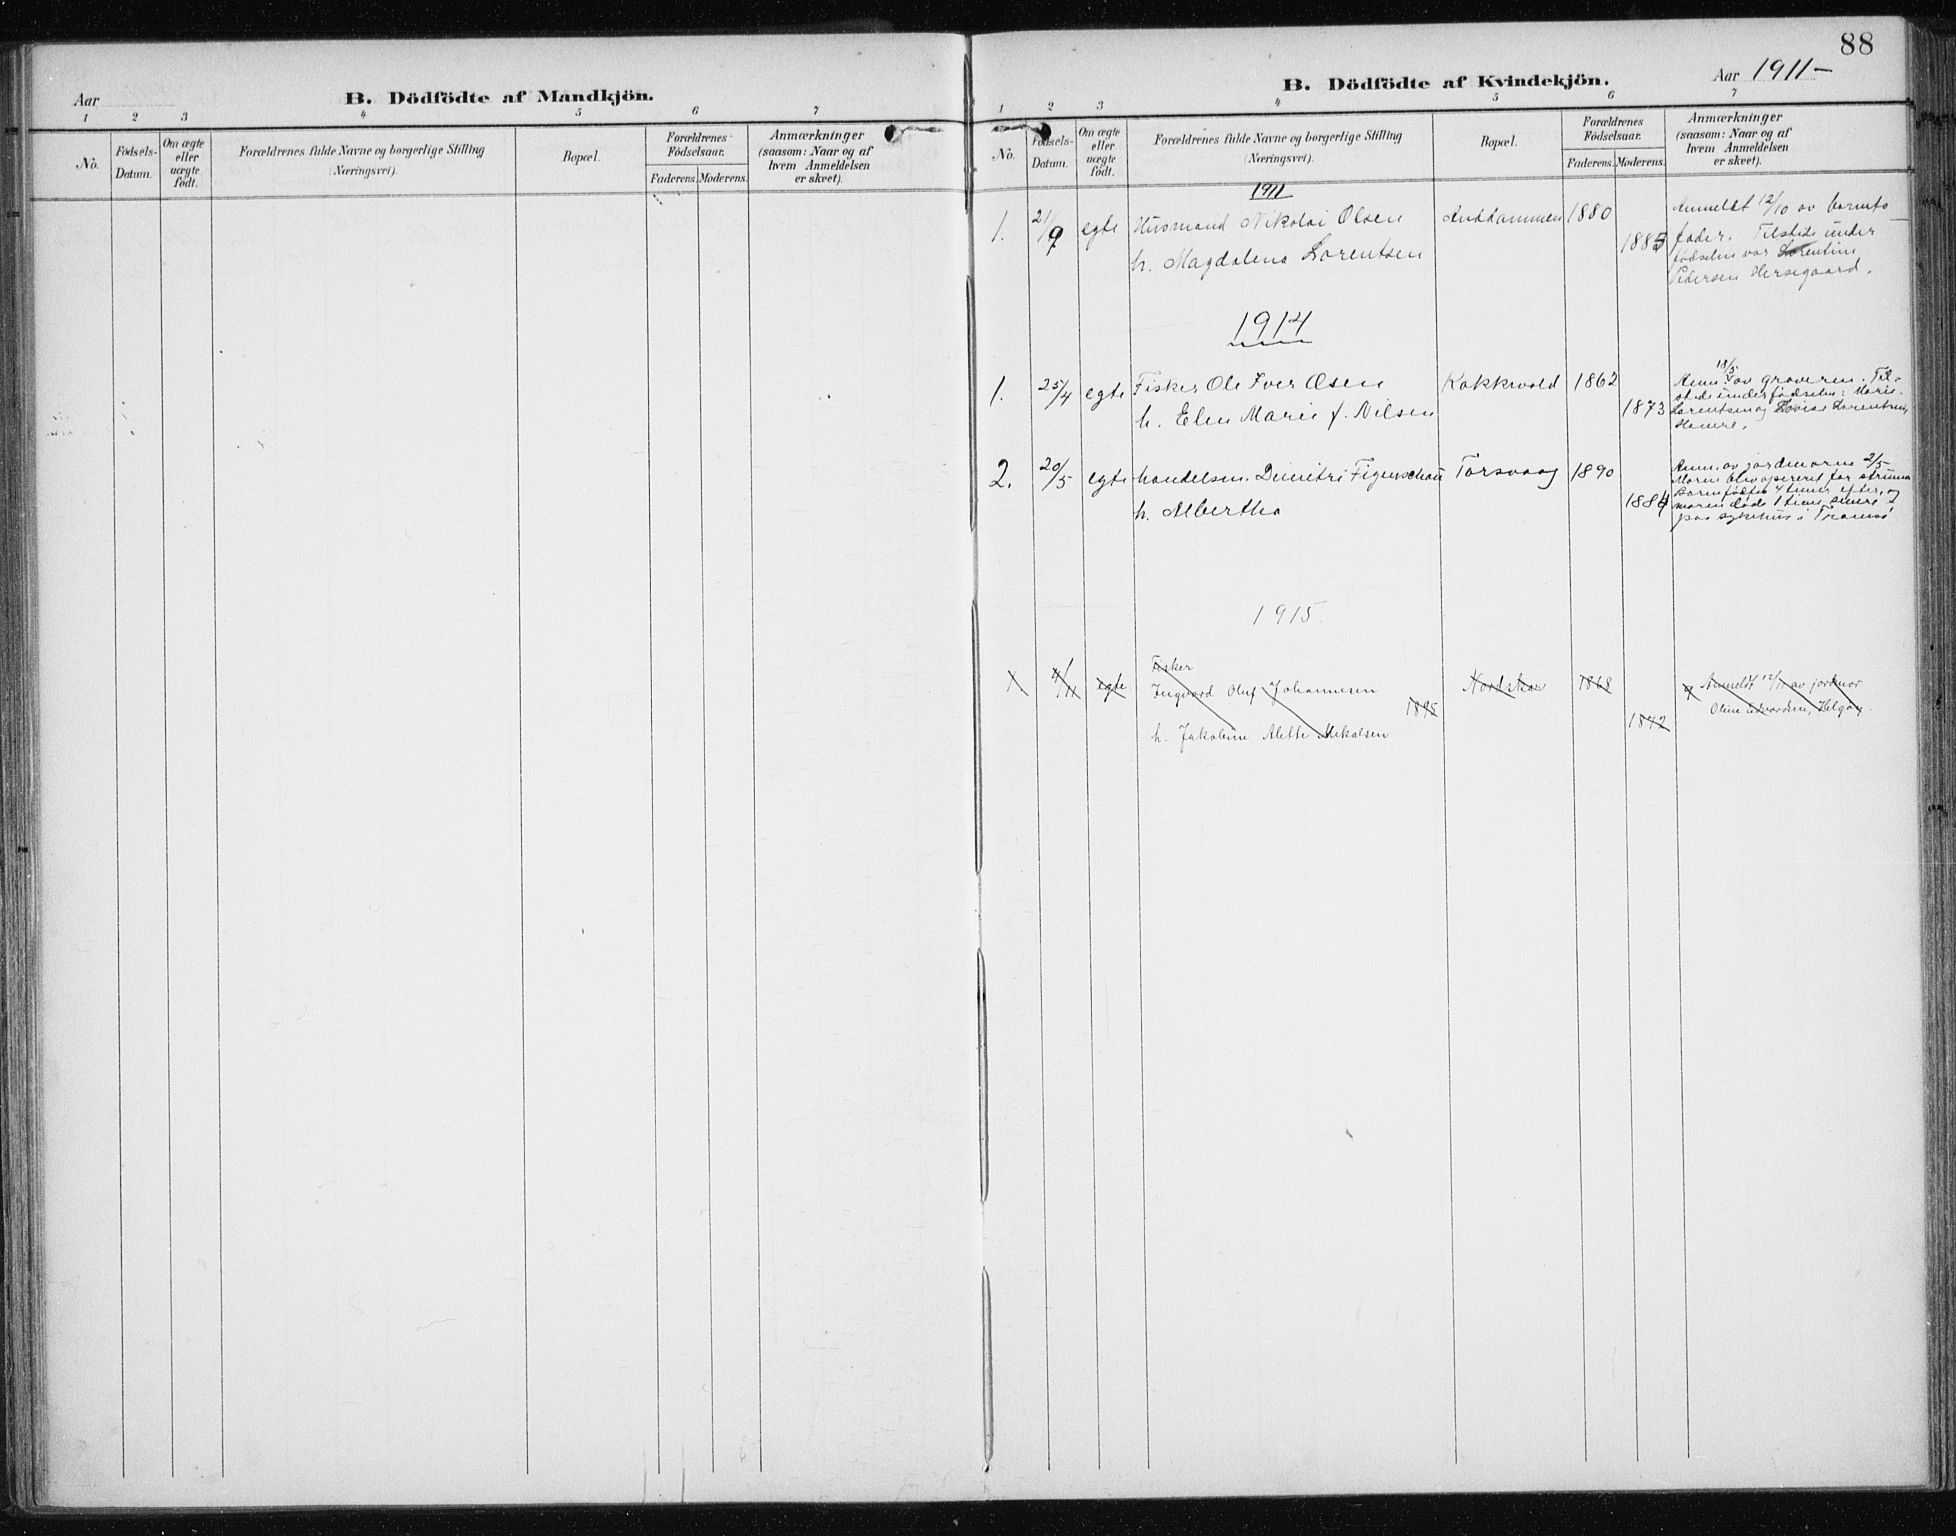 88
Aar
B. Dödfödte af Mandkjön.
1 2 3 4 5 6 7
No.
Födsels-
Datum.
Om ægte
eller
uægte
födt.
Forældrenes fulde Navne og borgerlige Stilling
(Næringsvei).
Bopæl.
Forældrenes
Födselsaar.
Faderens. Moderens.
Anmærkninger
(saasom: Naar og af
hvem Anmeldelsen
er skeet).
B. Dödfödte af Kvindekjön.
Aar 1911-
1 2 3 4 5 6 7
No.
Födsels-
Datum.
Om ægte
eller
uægte
födt.
Forældrenes fulde Navne og borgerlige Stilling
(Næringsvei).
Bopæl.
Forældrenes
Födselsaar.
Faderens. Moderens.
Anmærkninger
(saasom: Naar og af
hvem Anmeldelsen
er skeet).
1911
1. 21/9 egte Husmand Nikolai Olsen 1880
h. Magdalena Lorentsen 1885
Anmeldt 12/10 av barnets
fader. Tilstede under
födselen var Lorentine
Pedersen Hersegaard.
1914
1. 25/4 egte Fisker Ole Iver Olsen Kokkvold 1862
h. Elen Marie f. Nilsen 1873
18/5
Anm. av graveren. Til-
stede under födselen: Marie
Lorentsen og Lovise Lorentsen,
2. 20/5 egte handelsm. Dimitri Figenschau Torsvaag 1890
h. Albertha 1884
Anm. av jordmoren 2/5
Moren blev opereret for struma
Barnet födtes 4 timer efter, og
moren döde 1 time senere
paa sykehus i Tromsö
1915.
1 4/11 egte Fisker
Ingvard Oluf Johannesen Nordskar 1868
1895
h. Jakobine Alette Mikalsen 1872
Anmeldt 12/11 av jordmor
Oline Edvardsen, Helgöy.